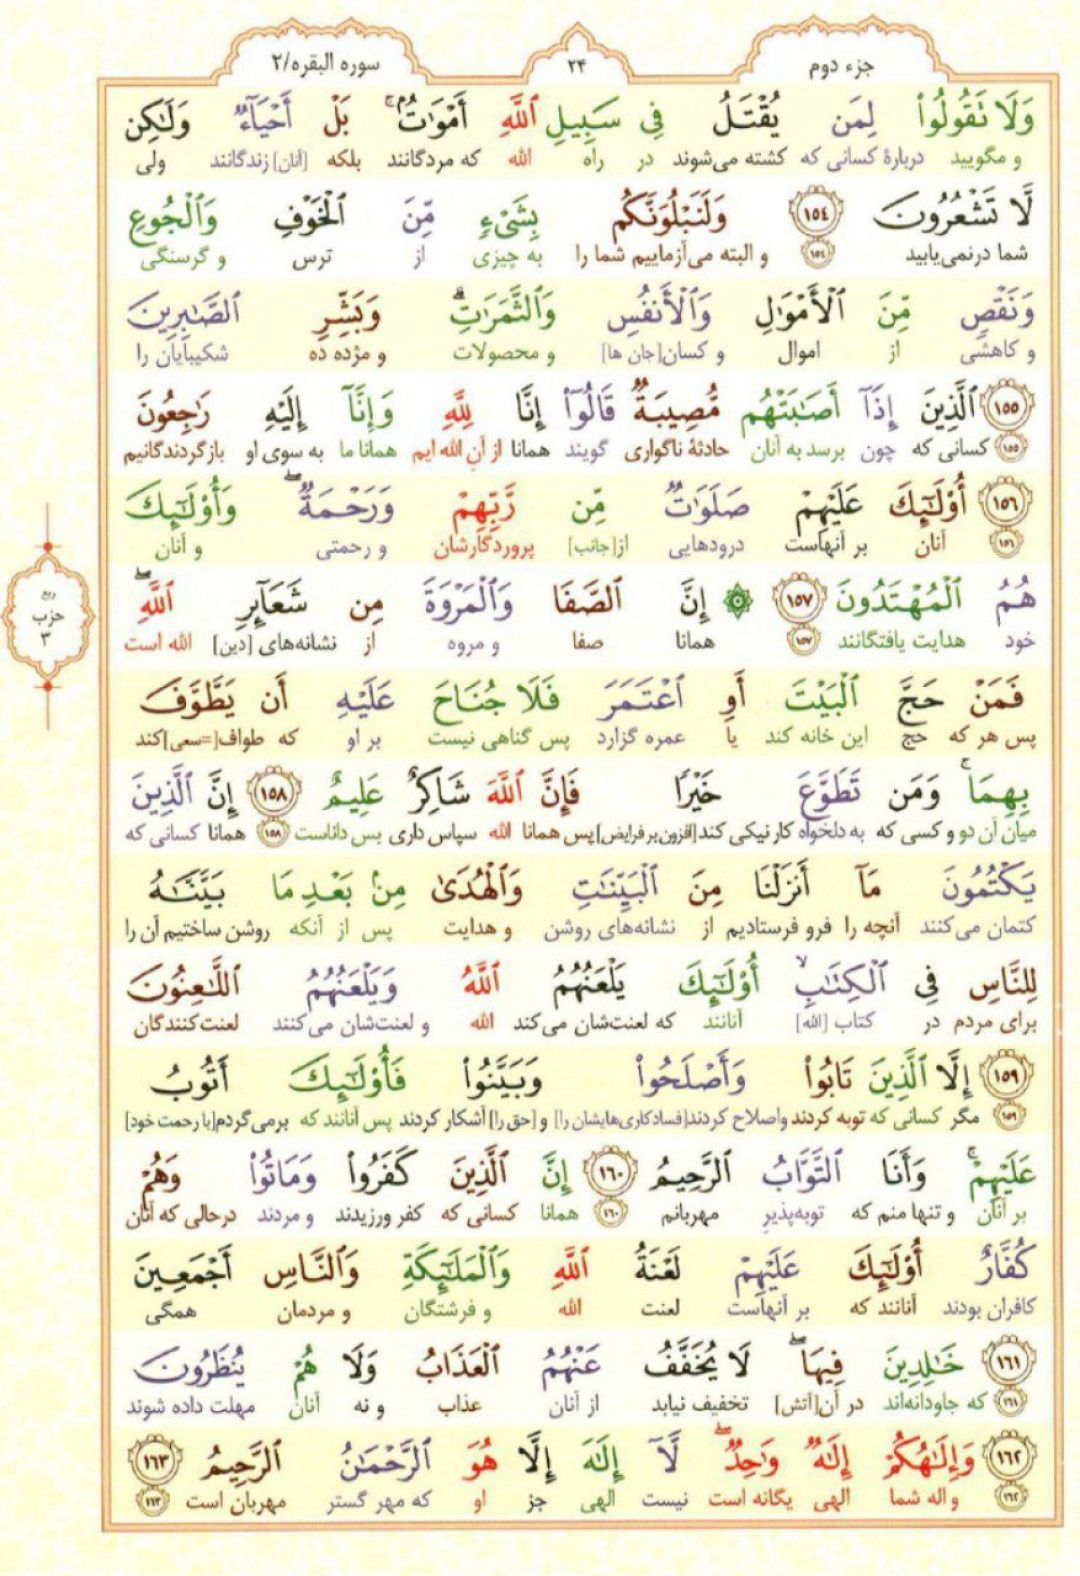 جزء دوم
۲۴
سوره البقره/۲
وَلَا تَقُولُوا۟ لِمَن يُقْتَلُ فِى سَبِيلِ ٱللَّهِ أَمْوَٰتٌۢ ۚ بَلْ أَحْيَآءٌ وَلَٰكِن
و مگویید دربارهٔ کسانی که کشته می‌شوند در راه الله که مردگانند بلکه [آنان] زندگانند ولی
لَّا تَشْعُرُونَ ١٥٤ وَلَنَبْلُوَنَّكُم بِشَىْءٍ مِّنَ ٱلْخَوْفِ وَٱلْجُوعِ
شما درنمی‌یابید ١٥٤ و البته می‌آزماییم شما را به چیزی از ترس و گرسنگی
وَنَقْصٍ مِّنَ ٱلْأَمْوَٰلِ وَٱلْأَنفُسِ وَٱلثَّمَرَٰتِ ۗ وَبَشِّرِ ٱلصَّٰبِرِينَ
و کاهشی از اموال و کسان[جان ها] و محصولات و مژده ده شکیبایان را
١٥٥ ٱلَّذِينَ إِذَآ أَصَٰبَتْهُم مُّصِيبَةٌ قَالُوٓا۟ إِنَّا لِلَّهِ وَإِنَّآ إِلَيْهِ رَٰجِعُونَ
١٥٥ کسانی که چون برسد به آنان حادثهٔ ناگواری گویند همانا از آنِ الله ایم همانا ما به سوی او بازگردندگانیم
١٥٦ أُو۟لَٰٓئِكَ عَلَيْهِمْ صَلَوَٰتٌ مِّن رَّبِّهِمْ وَرَحْمَةٌ ۖ وَأُو۟لَٰٓئِكَ
١٥٦ آنان بر آنهاست درودهایی از[جانب] پروردگارشان و رحمتی و آنان
هُمُ ٱلْمُهْتَدُونَ ١٥٧ ۞ إِنَّ ٱلصَّفَا وَٱلْمَرْوَةَ مِن شَعَآئِرِ ٱللَّهِ ۖ
خود هدایت یافتگانند ١٥٧ همانا صفا و مروه از نشانه‌های [دین] الله است
ربع
حزب
۳
فَمَنْ حَجَّ ٱلْبَيْتَ أَوِ ٱعْتَمَرَ فَلَا جُنَاحَ عَلَيْهِ أَن يَطَّوَّفَ
پس هر که حج این خانه کند یا عمره گزارد پس گناهی نیست بر او که طواف[=سعی]کند
بِهِمَا ۚ وَمَن تَطَوَّعَ خَيْرًا فَإِنَّ ٱللَّهَ شَاكِرٌ عَلِيمٌ ١٥٨ إِنَّ ٱلَّذِينَ
میان آن دو و کسی که به دلخواه کار نیکی کند[افزون‌بر فرایض] پس همانا الله سپاس داری بس داناست ١٥٨ همانا کسانی که
يَكْتُمُونَ مَآ أَنزَلْنَا مِنَ ٱلْبَيِّنَٰتِ وَٱلْهُدَىٰ مِنۢ بَعْدِ مَا بَيَّنَّٰهُ
کتمان می‌کنند آنچه را فرو فرستادیم از نشانه‌های روشن و هدایت پس از آنکه روشن ساختیم آن را
لِلنَّاسِ فِى ٱلْكِتَٰبِ ۙ أُو۟لَٰٓئِكَ يَلْعَنُهُمُ ٱللَّهُ وَيَلْعَنُهُمُ ٱللَّٰعِنُونَ
برای مردم در کتاب [الله] آنانند که لعنت‌شان می‌کند الله و لعنت‌شان می‌کنند لعنت‌کنندگان
١٥٩ إِلَّا ٱلَّذِينَ تَابُوا۟ وَأَصْلَحُوا۟ وَبَيَّنُوا۟ فَأُو۟لَٰٓئِكَ أَتُوبُ
١٥٩ مگر کسانی که توبه کردند واصلاح کردند[فسادکاری‌هایشان را] و[حق را] آشکار کردند پس آنانند که برمی‌گردم[با رحمت خود]
عَلَيْهِمْ ۚ وَأَنَا ٱلتَّوَّابُ ٱلرَّحِيمُ ١٦٠ إِنَّ ٱلَّذِينَ كَفَرُوا۟ وَمَاتُوا۟ وَهُمْ
بر آنان و تنها منم که توبه‌پذیرِ مهربانم ١٦٠ همانا کسانی که کفر ورزیدند و مردند درحالی که آنان
كُفَّارٌ أُو۟لَٰٓئِكَ عَلَيْهِمْ لَعْنَةُ ٱللَّهِ وَٱلْمَلَٰٓئِكَةِ وَٱلنَّاسِ أَجْمَعِينَ
کافران بودند آنانند که بر آنهاست لعنت الله و فرشتگان و مردمان همگی
١٦١ خَٰلِدِينَ فِيهَا ۖ لَا يُخَفَّفُ عَنْهُمُ ٱلْعَذَابُ وَلَا هُمْ يُنظَرُونَ
١٦١ که جاودانه‌اند در آن[آتش] تخفیف نیابد از آنان عذاب و نه آنان مهلت داده شوند
١٦٢ وَإِلَٰهُكُمْ إِلَٰهٌ وَٰحِدٌ ۖ لَّآ إِلَٰهَ إِلَّا هُوَ ٱلرَّحْمَٰنُ ٱلرَّحِيمُ ١٦٣
١٦٢ و اله شما الهی یگانه است نیست الهی جز او که مهر گستر مهربان است ١٦٣